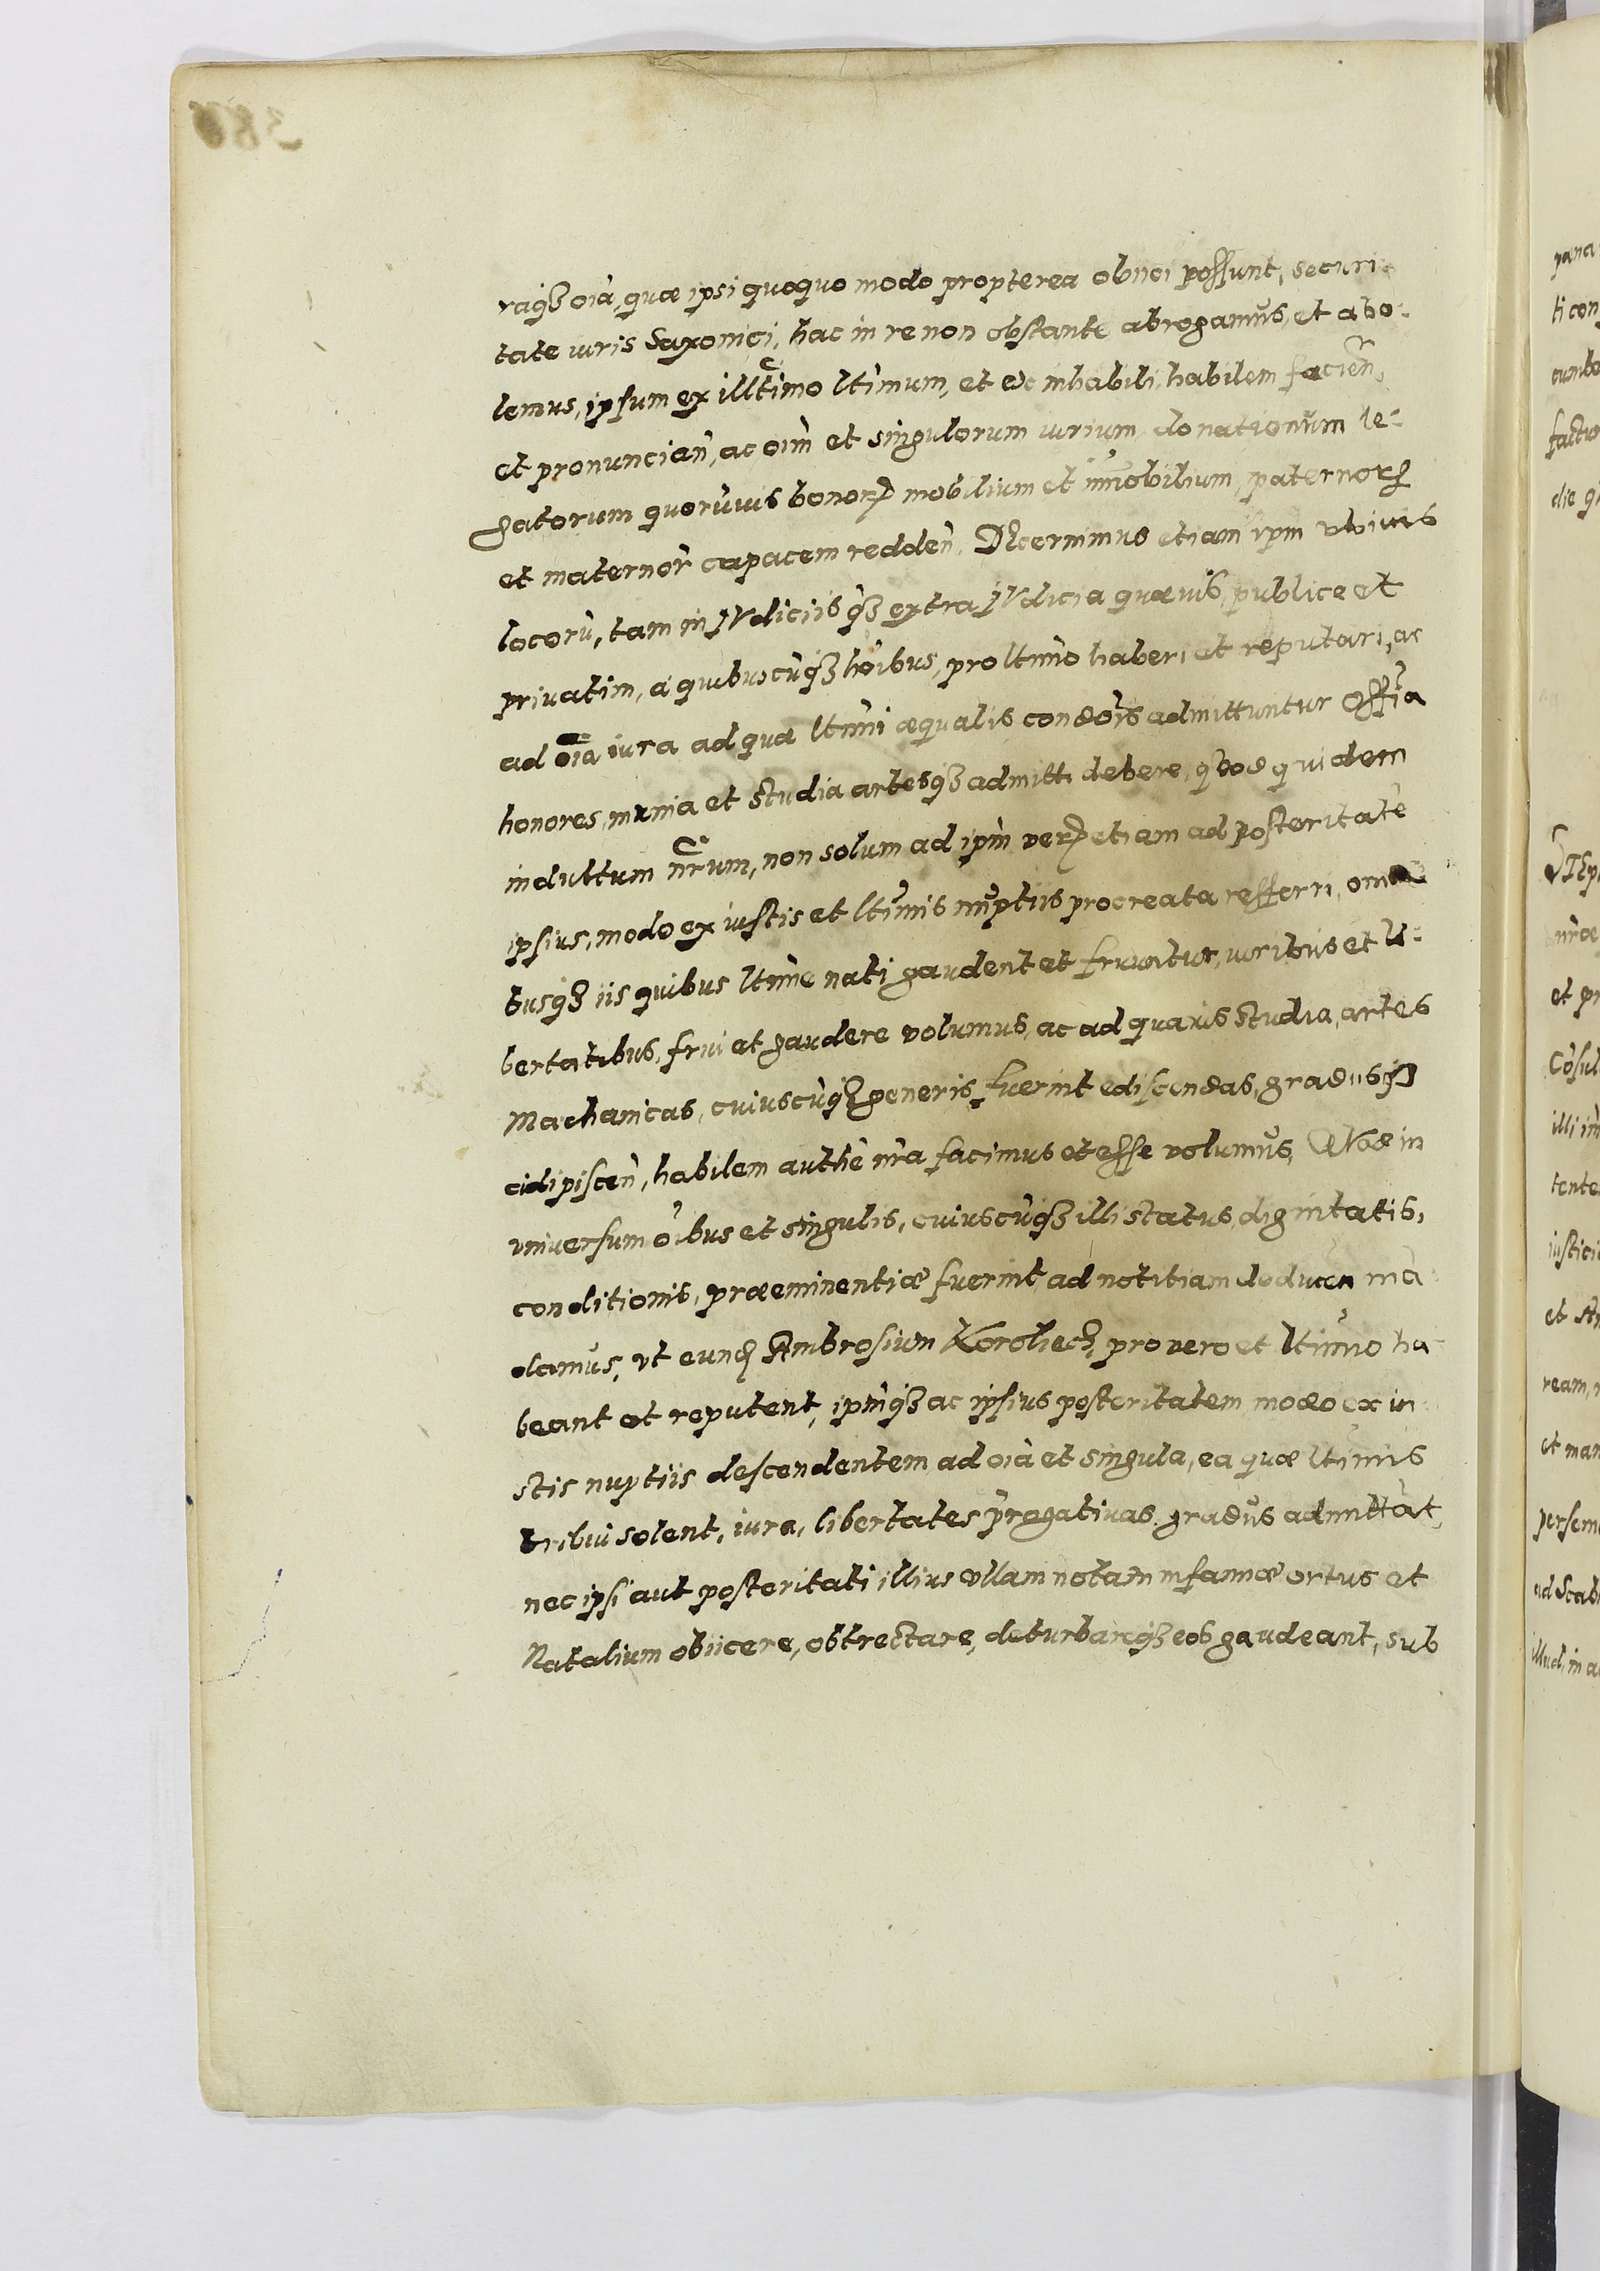 raqȝ oiā, quæ ipsi quoquo modo propterea obiici possunt, securi
tate iuris Saxonici, hac in re non obstante abrogamus, et abo-
lemus, ipsum ex illtimo ltimum, et ex inhabili, habilem facien,
et pronuncian̄, ac oīm et singulorum iurium, donationum le-
gatorum quorūuis bonorꝝ mobilium et immobilium, paternorꝝ
et maternor̄ capacem redden̄. Decernimus etiam ipm̄ vbiuis
locorū, tam in iudiciis qȝ extra iudicia quæuis, publice et
priuatim, a quibuscūqȝ hoībus, pro ltimo haberi et reputari, ac
ad oīa iura ad quæ ltimi æqualis condōis admittuntur Offīa
honores, munia et studia artesqȝ admitti debere, quod quidem
indultum nr̄um, non solum ad ipm̄ verꝝ etiam ad posteritatē
ipsius, modo ex iustis et ltimis nuptiis procreata refferri, omni
busqȝ iis quibus ltime nati gaudent et fruuntur, iuribus et li-
bertatibus, frui et gaudere volumus, ac ad quauis studia, artes
Mechanicas, cuiuscūqȝ generis fuerint ediscendas, gradusqȝ
adipiscen̄, habilem authē nr̄a facimus et esse volumus, Quod in
vniuersum oībus et singulis, cuiuscūqȝ illi status, dignitatis,
conditionis, præeminentiæ fuerint, ad notitiam deducen man
damus, vt eund Ambrosium Koroliech, pro vero et ltimo ha-
beant et reputent, ipm̄qȝ ac ipsius posteritatem modo ex iu
stis nuptiis descendentem, ad oiā et singula, ea quæ ltimis
tribui solent, iura, libertates prrogatiuas, gradus admittāt,
nec ipsi aut posteritati illius vllam notam infamiæ ortus et
Natalium obiicere, obtrectare, deturbareqȝ eos gaudeant, sub